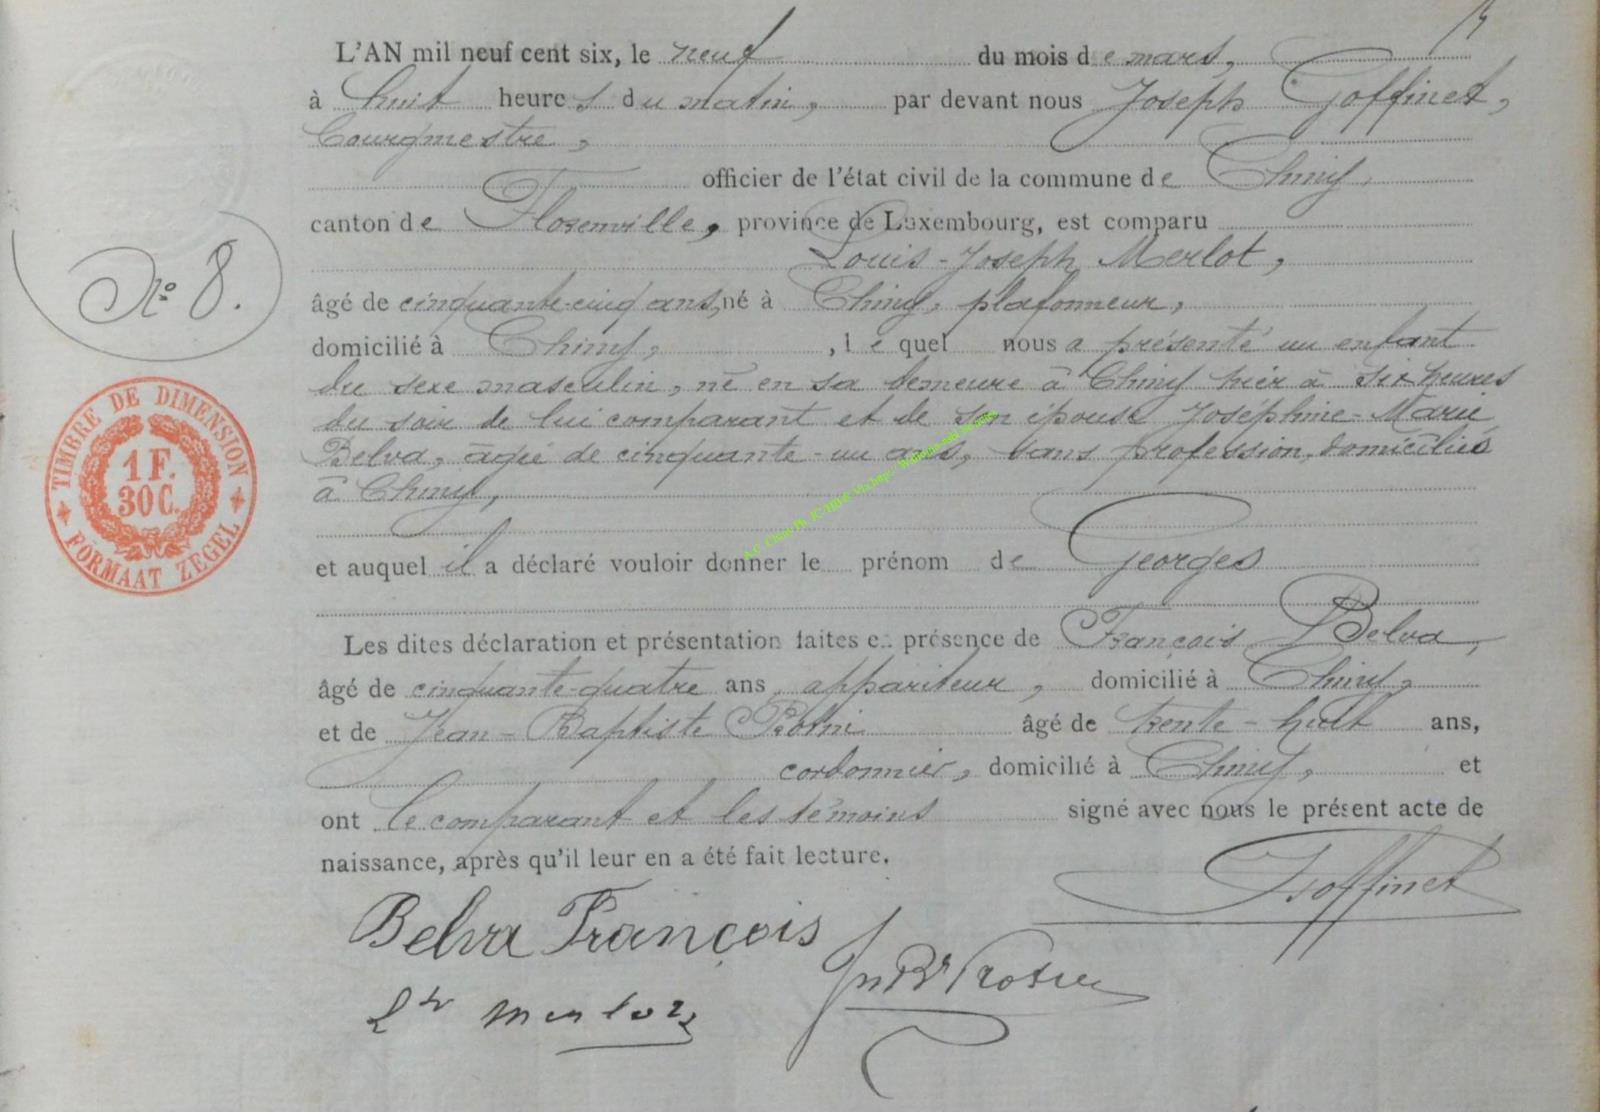 L'AN mil neuf cent six, le neuf du mois de mars,
à huit heures du matin, par devant nous Joseph Goffinet,
bourgmestre,
officier de l'état civil de la commune de Chiny
canton de Florenville, province de Luxembourg, est comparu
Louis-Joseph Merlot,
âgé de cinquante-cinq ans, né à Chiny, plafonneur,
domicilié à Chiny, lequel nous a présenté un enfant
du sexe masculin, né en sa demeure à Chiny hier à six heures
du soir de lui comparant et de son épouse Joséphine-Marie
Belva, âgée de cinquante-un ans, sans profession, domiciliés
à Chiny,
et auquel il a déclaré vouloir donner le prénom de Georges
Les dites déclaration et présentation faites en présence de François Belva,
âgé de cinquante-quatre ans, appariteur, domicilié à Chiny,
et de Jean-Baptiste âgé de trente-huit ans,
cordonnier, domicilié à Chiny, et
ont le comparant et les témoins signé avec nous le présent acte de
naissance, après qu'il leur en a été fait lecture.
Goffinet
Belva François
Jn Bte
Ls Merlot
N° 8.
TIMBRE DE DIMENSION
1 F.
30 C.
FORMAAT ZEGEL